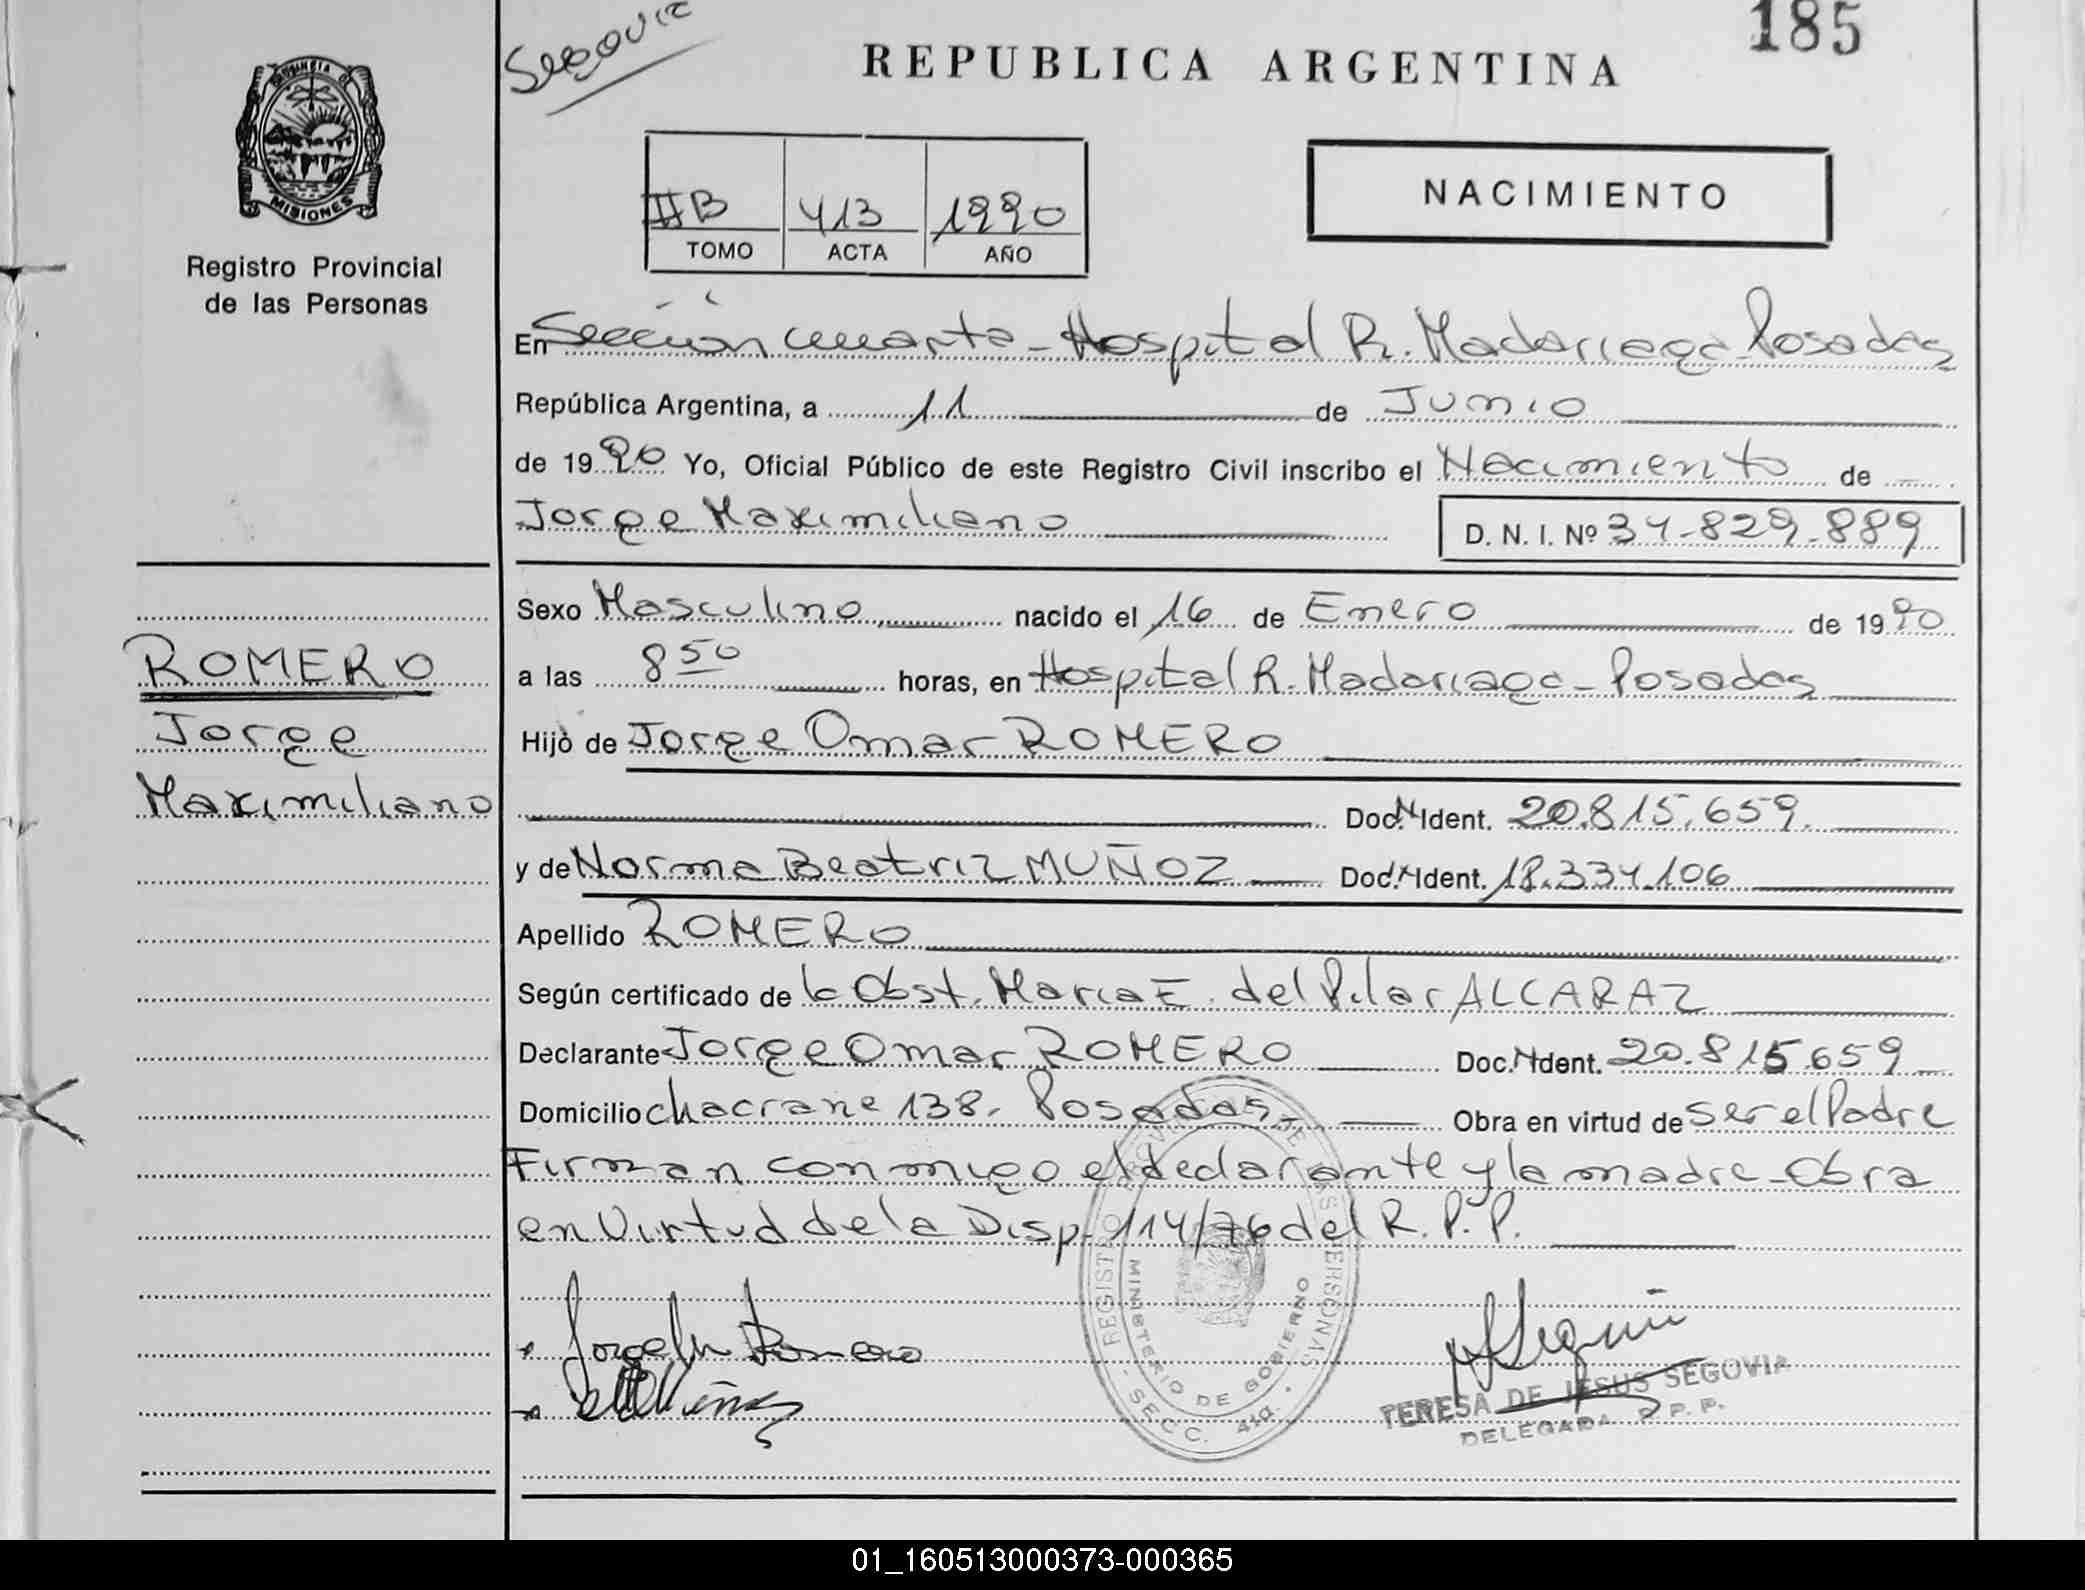 Segovia
185
REPUBLICA ARGENTINA
PROVINCIA DE
MISIONES
Registro Provincial
de las Personas
IIB 413 1990
TOMO ACTA AÑO
NACIMIENTO
En Sección cuarta - Hospital R. Madariaga - Posadas
República Argentina, a 11 de Junio
de 1990 Yo, Oficial Público de este Registro Civil inscribo el Nacimiento de
Jorge Maximiliano D. N. I. Nº 34-829-889
Sexo Masculino nacido el 16 de Enero de 1990
ROMERO
Jorge
Maximiliano
a las 8 50 horas, en Hospital R. Madariaga - Posadas
Hijo de Jorge Omar ROMERO
Doc. N Ident. 20.815.659.
y de Norma Beatriz MUÑOZ Doc. N Ident. 18.334.106
Apellido ROMERO
Según certificado de la Obst. Maria E. del Pilar ALCARAZ
Declarante Jorge Omar ROMERO Doc. N Ident. 20.815.659
Domicilio chacra ne 138. Posadas- Obra en virtud de ser el Padre
Firman conmigo el declarante y la madre - Obra
en Virtud de la Disp. 114/76 del R. P. P.
REGISTRO PERSONAS
MINISTERIO DE GOBIERNO
SECC. 4ta.
Romero
TERESA DE JESUS SEGOVIA
DELEGADA R. P. P.
01_160513000373-000365